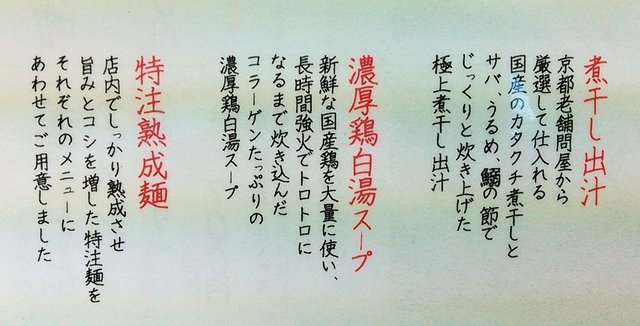 煮干し出汁
京都老舗問屋から
厳選して仕入れる
国産のカタクチ煮干しと
サバ、うるめ、鰯の節で
じっくりと炊き上げた
極上煮干し出汁
濃厚鶏白湯スープ
新鮮な国産鶏を大量に使い、
長時間強火でトロトロに
なるまで炊き込んだ
コラーゲンたっぷりの
濃厚鶏白湯スープ
特注熟成麺
店内でしっかり熟成させ
旨みとコシを増した特注麺を
それぞれのメニューに
あわせてご用意しました